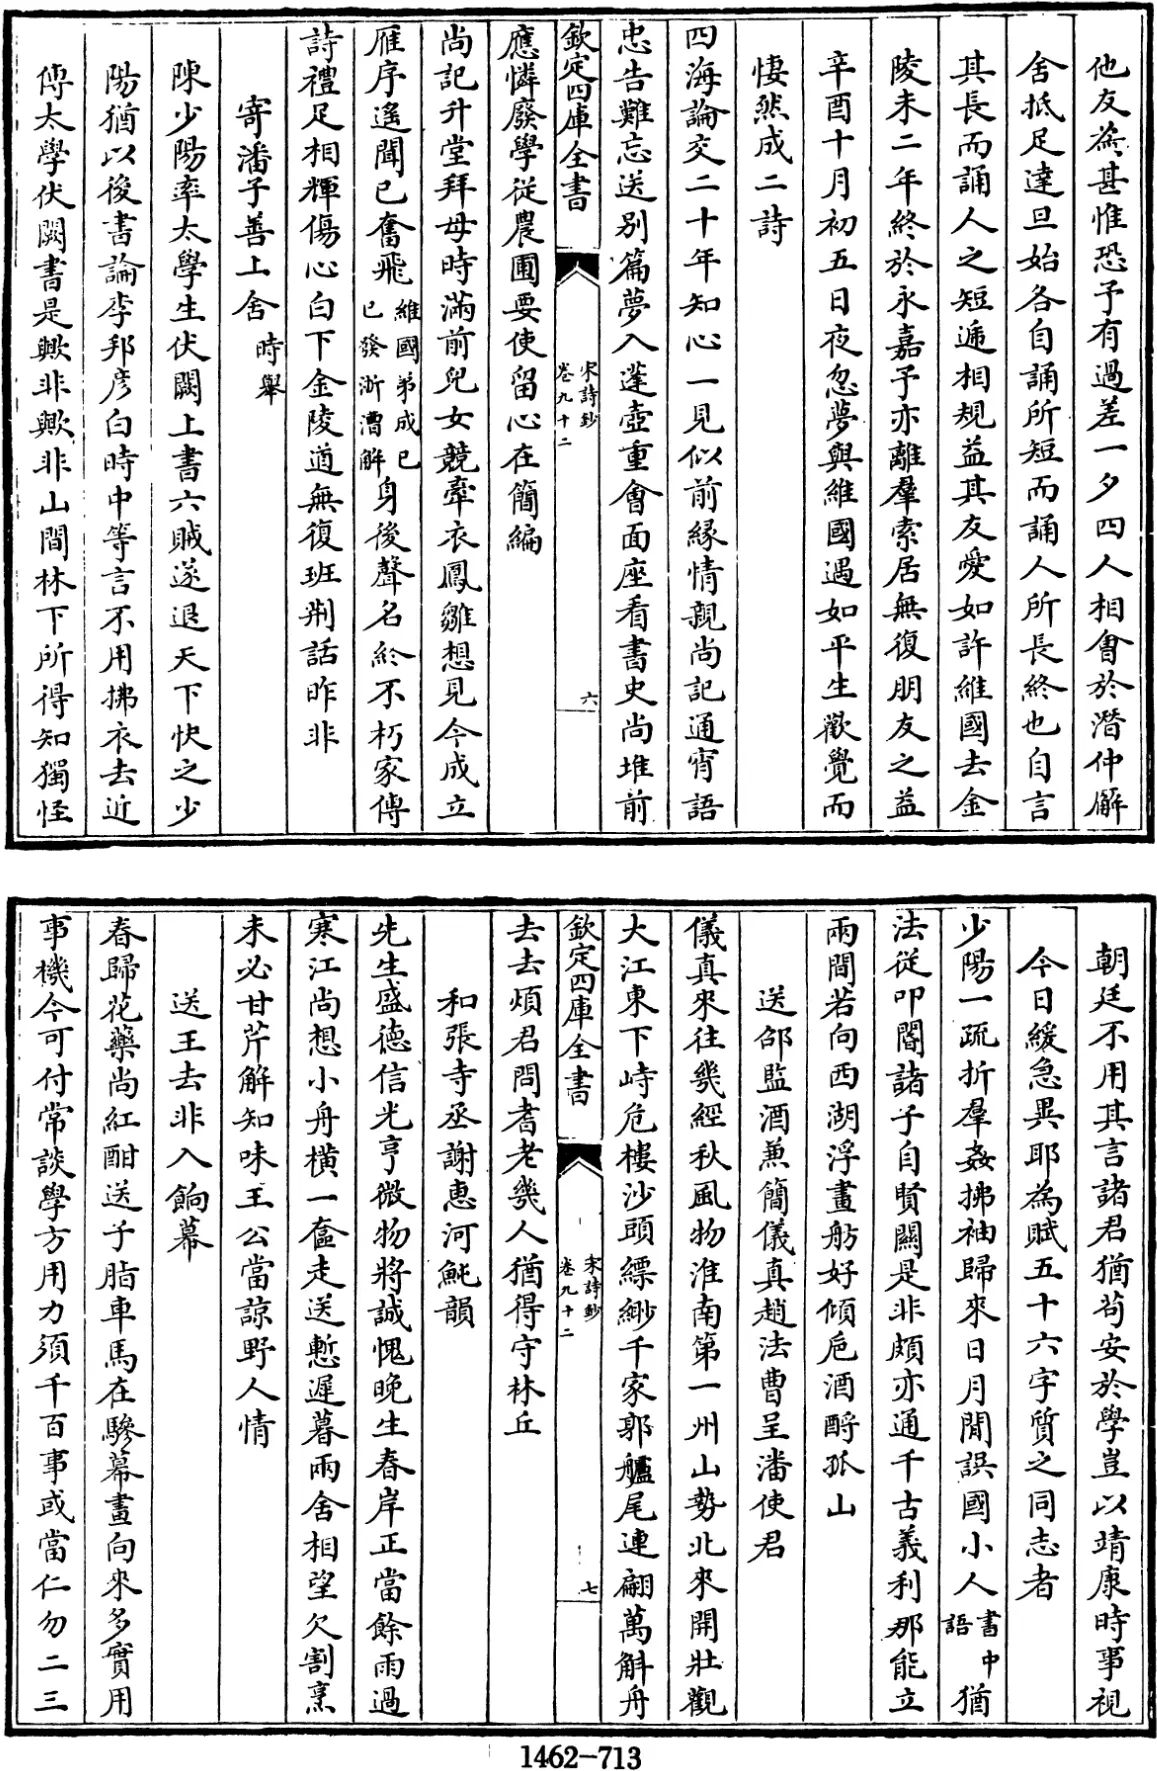 他友為甚惟恐予有過差一夕四人相會於潛仲廨
舍抵足達旦始各自誦所短而誦人所長終也自言
其長而誦人之短逓相規益其友愛如許維國去金
陵未二年終於永嘉予亦離羣索居無復朋友之益
辛酉十月初五日夜忽夢與維國遇如平生歡覺而
悽然成二詩
四海論交二十年知心一見似前緣情親尚記通宵語
忠告難忘送别篇夢入蓬壺重會面座看書史尚堆前
欽定四庫全書
宋詩鈔
卷九十二
六
應憐廢學從農圃要使留心在簡編
尚記升堂拜母時滿前兒女競牽衣鳳雛想見今成立
雁序遙聞已奮飛維國弟成已已發浙漕解身後聲名終不朽家傳
詩禮足相輝傷心白下金陵道無復班荆話昨非
寄潘子善上舍時舉
陳少陽率太學生伏闕上書六賊遂退天下快之少
陽猶以後書論李邦彦白時中等言不用拂衣去近
傳太學伏闕書是歟非歟非山間林下所得知獨怪
朝廷不用其言諸君猶茍安於學豈以靖康時事視
今日緩急異耶為賦五十六字質之同志者
少陽一疏折羣姦拂袖歸來日月閒誤國小人書中語猶
法從叩閽諸子自賢關是非頗亦通千古義利那能立
兩間若向西湖浮畫舫好傾卮酒酹孤山
送邵監酒兼簡儀真趙法曹呈潘使君
儀真來往幾經秋風物淮南第一州山勢北來開壯觀
大江東下峙危樓沙頭縹緲千家郭艫尾連翩萬斛舟
欽定四庫全書
宋詩鈔
卷九十二
七
去去煩君問耆老幾人猶得守林丘
和張寺丞謝惠河魨韻
先生盛德信光亨微物將誠愧晚生春岸正當餘雨過
寒江尚想小舟横一奩走送慙遲暮兩舍相望欠割烹
未必甘芹解知味王公當諒野人情
送王去非入餉幕
春歸花藥尚紅酣送子脂車馬在驂幕畫向來多實用
事機今可付常談學方用力須千百事或當仁勿二三
1462—713